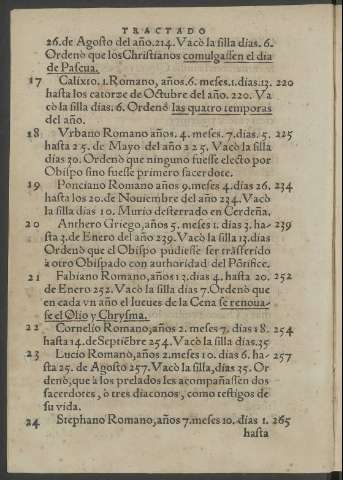 TRACTADO
26. de Agosto del año. 214. Vacò la silla dias. 6.
Ordenò que los Christianos comulgassen el dia
de Pascua.
17 Calixto. 1. Romano, años. 6. meses. 1. dias. 13. 220
hasta los catorze de Octubre del año. 220. Va
cò la silla dias. 6. Ordenò las quatro temporas
del año.
18 Vrbano Romano años. 4. meses. 7. dias. 5. 225
hasta 25. de Mayo del año 225. Vacò la silla
dias 30. Ordenò que ninguno fuesse electo por
Obispo sino fuesse primero sacerdote.
19 Ponciano Romano años 9. meses 4. dias 26. 234
hasta los 20. de Nouiembre del año 234. Vacò
la silla dias 10. Murio desterrado en Cerdeña.
20 Anthero Griego, años 5. meses 1. dias 3. ha- 239
sta 3. de Enero del año 239. Vacò la silla 13. dias
Ordenò que el Obispo pudiesse ser trasferido
a otro Obispado con authoridad del Põtifice.
21 Fabiano Romano, años 13. dias 4. hasta 20. 252
de Enero 252. Vacò la silla dias 7. Ordenò que
en cada vn año el iueues de la Cena se renoua-
se el Olio y Chrysma.
22 Cornelio Romano, años 2. meses 7. dias 18. 254
hasta 14. de Septiẽbre 254. Vacò la silla dias. 35
23 Lucio Romanò, años 2. meses 10. dias 6. ha- 257
sta 25. de Agosto 257. Vacò la silla, dias 35. Or
denò, que a los prelados les acompañassen dos
sacerdotes, ò tres diaconos, como testigos de
su vida.
24 Stephano Romano, años 7. meses 10. dias 1. 265
hasta